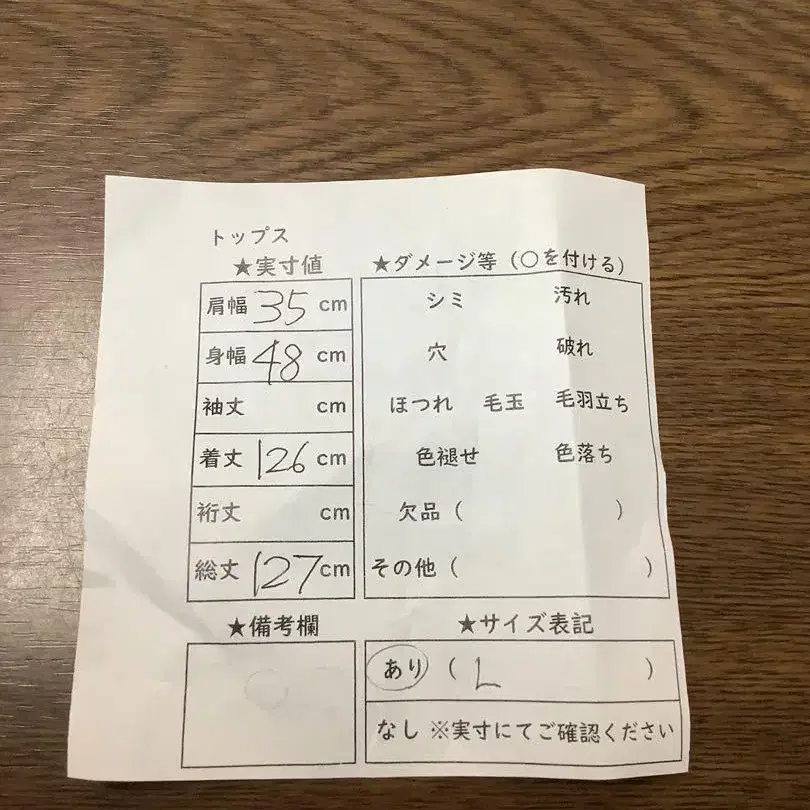 トップス
★実寸値
肩幅 35 cm
身幅 48 cm
袖丈 cm
着丈 126 cm
裄丈 cm
総丈 127 cm
★ダメージ等（○を付ける）
シミ 汚れ
穴 破れ
ほつれ 毛玉 毛羽立ち
色褪せ 色落ち
欠品（ ）
その他（ ）
★備考欄
★サイズ表記
あり（ L ）
なし ※実寸にてご確認ください